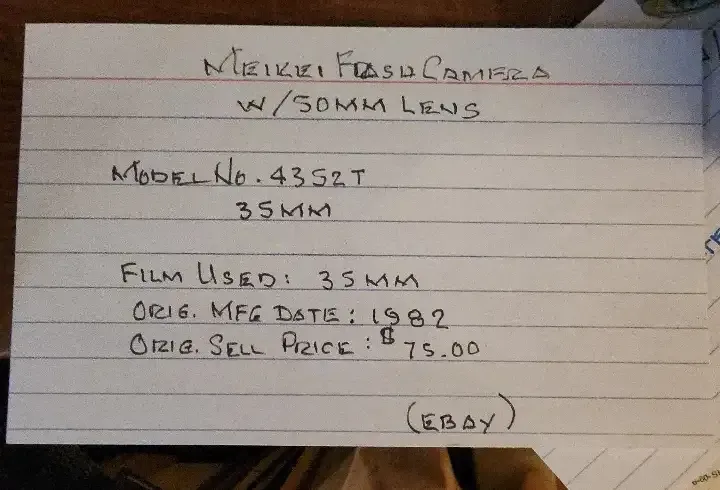 MEIKEI FLASH CAMERA
W/50MM LENS
MODEL NO. 4352T
35MM
FILM USED: 35MM
ORIG. MFG DATE: 1982
ORIG. SELL PRICE: $75.00
(EBAY)